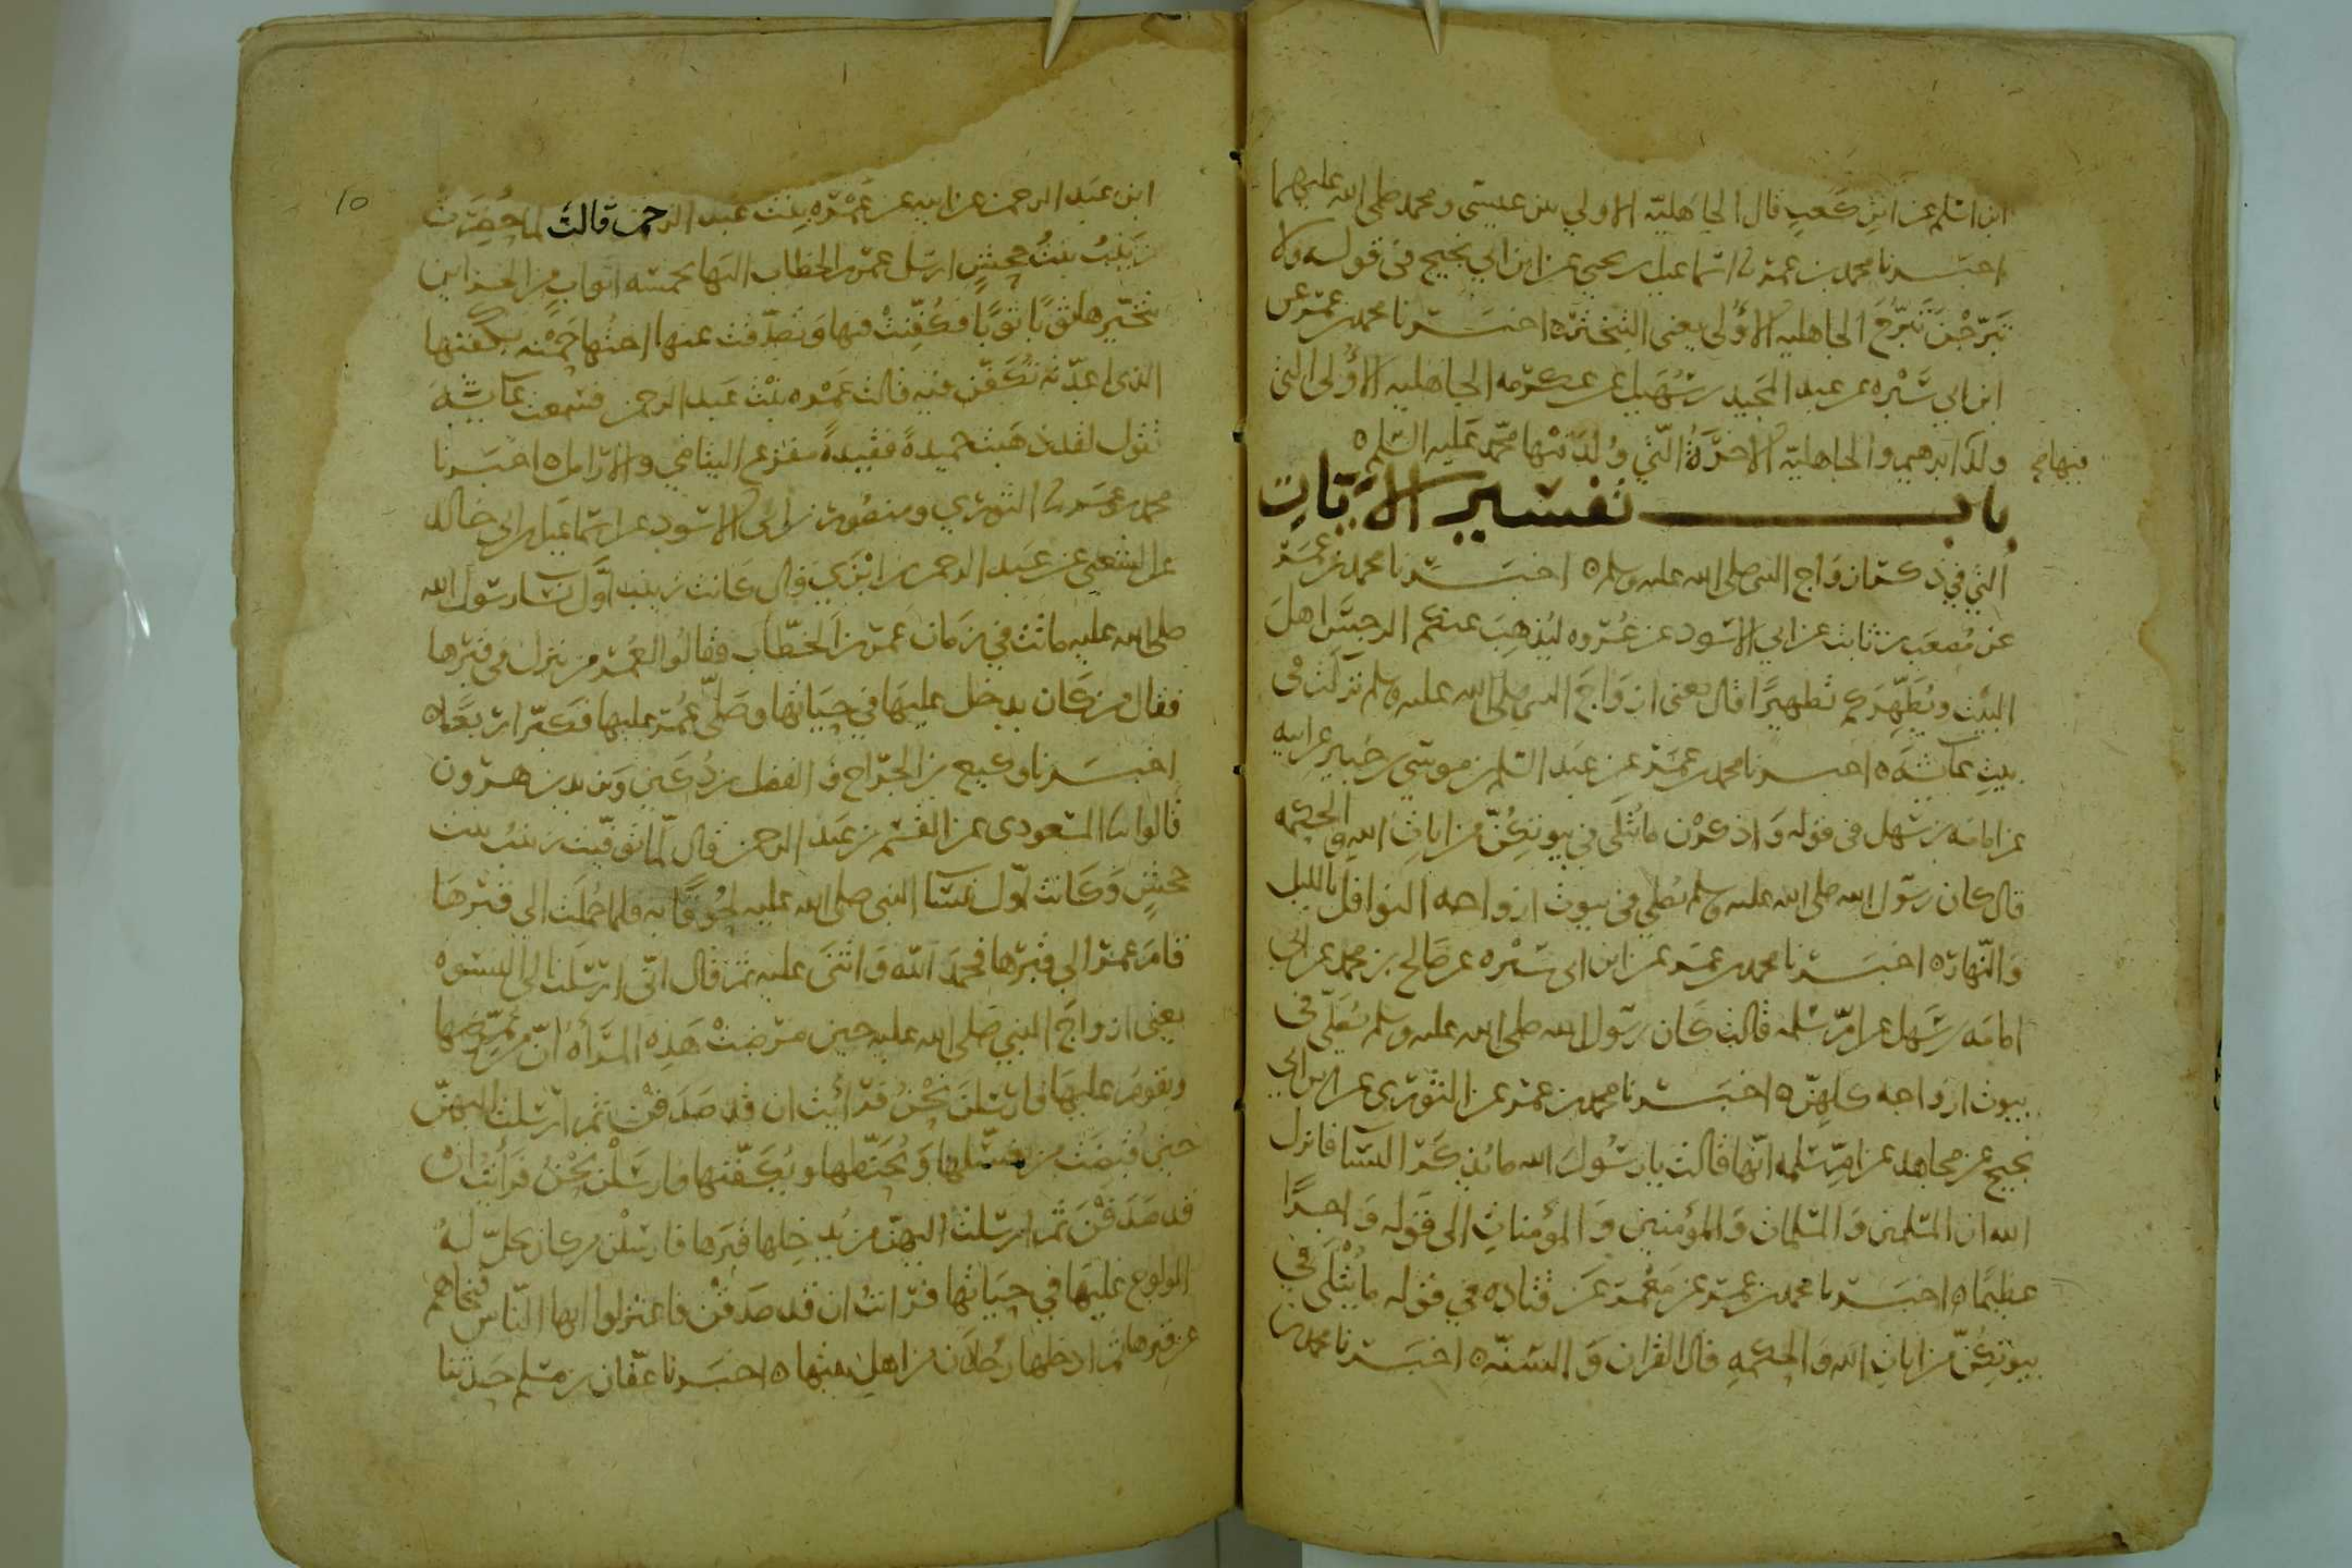 ابن اسلم عن ابن كعب قال الجاهلية الاولى بين عيسى ومحمد صلى الله عليهما
اخبرنا محمد بن عمر نا اسماعيل بن يحيى عن ابن ابي نجيح في قوله ولا
تبرّجن تبرّج الجاهليه الاولى يعني التبختره اخبرنا محمد بن عمر عن
ابن ابي سبره عن عبد المجيد بن سهيل عن عكرمه الجاهليه الاولى التي
ولد ابرهيم والجاهليّه الاخرة التي ولد فيها محمد عليه السلم ه
فيها صح
باب تفسير الآيات
التي في ذكر ازواج النبي صلى الله عليه وسلم ه اخبرنا محمد بن عمر
عن مصعب بن ثابت عن ابي الاسود عن عروه ليذهب عنكم الرجس اهل
البيت ويطهّركم تطهيرًا قال يعني ازواج النبي صلى الله عليه وسلم نزلت في
بيت عائشة ه اخبرنا محمد بن عمر عن عبد السلم بن موسى بن جبير عن ابيه
عن امامه بن سهل في قوله واذكرن ما يتلى في بيوتكنّ من ايات الله والحكمه
قال كان رسول الله صلى الله عليه وسلم يصلي في بيوت ازواجه النوافل بالليل
والنّهار ه اخبرنا محمد بن عمر عن ابن ابي سبره عن صالح بن محمد عن ابي
امامه بن سهل عن امّ سلمه قالت كان رسول الله صلى الله عليه وسلم يصلّي في
بيوت ازواجه كلهنّ ه اخبرنا محمد بن عمر عن الثوري عن ابن ابي
نجيح عن مجاهد عن امّ سلمه انّها قالت يا رسول الله ما يذكر النسا فانزل
الله ان المسلمين والمسلمات والمؤمنين والمؤمنات الى قوله واجرًا
عظيمًا ه اخبرنا محمد بن عمر عن معمر عن قتاده في قوله ما يتلى في
بيوتكنّ من ايات الله والحكمه قال القران والسنّه ه اخبرنا محمد بن
10
ابن عبد الرحمن عن ابيه عن عمره بنت عبد الرحمن قالت لما حضرت
زينب بنت جحش ارسل عمر بن الخطاب اليها بخمسه اثواب من الخزاين
يتخيّرها ثوبًا ثوبًا فكفّنت فيها وتصدّقت عنها اختها حمنه بكفنها
الذي اعدّته تكفّن فيه قالت عمره بنت عبد الرحمن فسمعت عائشة
تقول لقد ذهبت حميدةً فقيدةً مفزع اليتامى والارامل ه اخبرنا
محمد بن عمر نا الثوري ومنصور بن ابي الاسود عن اسماعيل بن ابي خالد
عن الشعبي عن عبد الرحمن بن ابزى قال كانت زينب اوّل نسا رسول الله
صلى الله عليه ماتت في زمان عمر بن الخطّاب فقالوا لعمر من ينزل في قبرها
فقال من كان يدخل عليها في حياتها وصلّى عمر عليها فكبّر اربعًا ه
اخبرنا وكيع بن الجرّاح والفضل بن دكين ويزيد بن هرون
قالوا نا المسعودى عن القسم بن عبد الرحمن قال لمّا توفّيت زينب بنت
جحش وكانت اوّل نسا النبي صلى الله عليه لحوقًا به فلما حملت الى قبرها
قام عمر الى قبرها فحمد الله واثنى عليه ثم قال انّي ارسلت الى النسوه
يعني ازواج النبي صلى الله عليه حين مرضت هذه المرأه ان من يمرّضها
ويقوم عليها فارسلن نحن فرأيت ان قد صدقن ثم ارسلت اليهنّ
حين قبضت من يغسّلها ويحنّطها ويكفّنها فارسلن نحن فرأيت ان
قد صدقن ثم ارسلت اليهنّ من يدخلها قبرها فارسلن من كان يحلّ له
الولوج عليها في حياتها فرأيت ان قد صدقن فاعتزلوا ايها النّاس فنحاهم
عن قبرها ثم ادخلها رجلان من اهل بيتها ه اخبرنا عفّان بن مسلم حدثنا